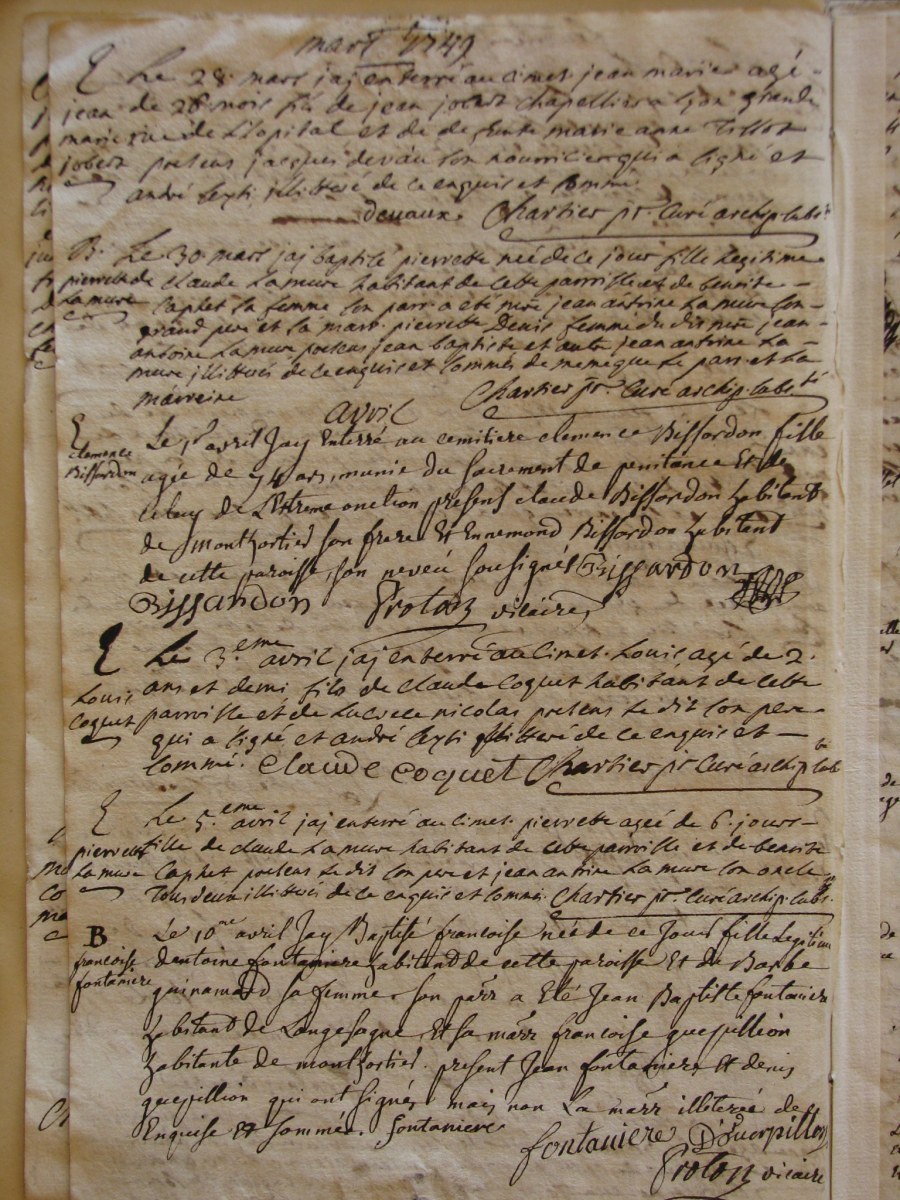 mars 1749
E Le 28 mars jaj enterré au cimet. jean marier agé
jean de 28 mois fils de jean jobert chapellier a Lyon grande
marie rue de L'hopital et de de funte marie anne
jobert presens jacques devau son nourricier qui a signé et
andré Seyti illitteré de ce enquis et sommé.
devaux. Chartier ptr. Curé archip. subst.
B. Le 30 mars jaj baptisé pierrette née de ce jour fille Legitime
pierrette de claude La mure habitant de cette parroisse et de benoite
La mure Caphet sa femme son parr. a été mre jean antoine La mure son
grand pere et sa marr. pierrette Denis femme du dit mre jean
antoine La mure presens jean baptiste et autre jean antoine La
mure illitterés de ce enquis et sommés de meme que Le parr et La
marreine Chartier ptr. Curé archip. subst.
avril
E Le 1er avril Jay Enterré au cemitiere clemence Bissardon fille
clemence agée de 74 ans, munie du sacrement de penitance Et de
Bissardon celuy de L'extreme onction presens claude Bissardon habitant
de montrortier son frere Et Ennemond Bissardon habitant
de cette paroisse, son neveu sousignés Bissardon
Bissardon Proton vicaire
E Le 3.eme avril jaj enterré au cimet. Louis agé de 2.
Louis ans et demi fils de claude Coquet habitant de cette
Coquet parroisse et de Lucrece nicolas presens Le dit son pere
qui a signé et andré Seyti illitteré de ce enquis et
sommé. claude coquet Chartier ptr Curé archip. sub
E Le 5.eme avril jaj enterré au cimet. pierrette ageé de 6. jours
pierrette fille de claude La mure habitant de cette parroisse et de benoite
La mure Caphet presens Le dit son pere et jean antoine La mure son oncle
Tous deux illitterés de ce enquis et sommés. Chartier ptr. Curé archip. subst.
B Le 10me avril Jay Baptisé francoise née de ce Jour fille Legitime
francoise d'antoine fontaniere habitand de cette paroisse Et de Barbe
fontaniere guinamard sa femme. son parr a Eté Jean Baptiste fontaniere
habitant de Longesagne, Et sa marr francoise querpillion
habitante de montrortier. present Jean fontaniere Et denis
querpillion qui ont signés mais non La marr illiterée de
Enquise Et sommée. fontaniere
fontaniere D Querpillon
Proton vicaire